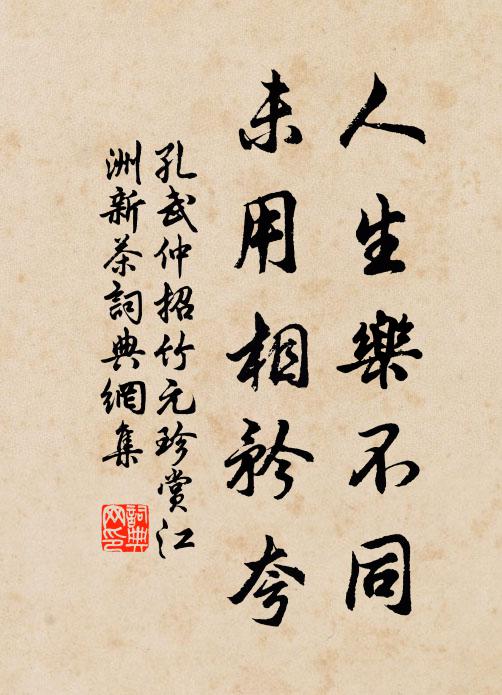 人生樂不同
未用相矜夸
孔武仲招竹元珍賞江
洲新茶詞典網集
詞典
网印